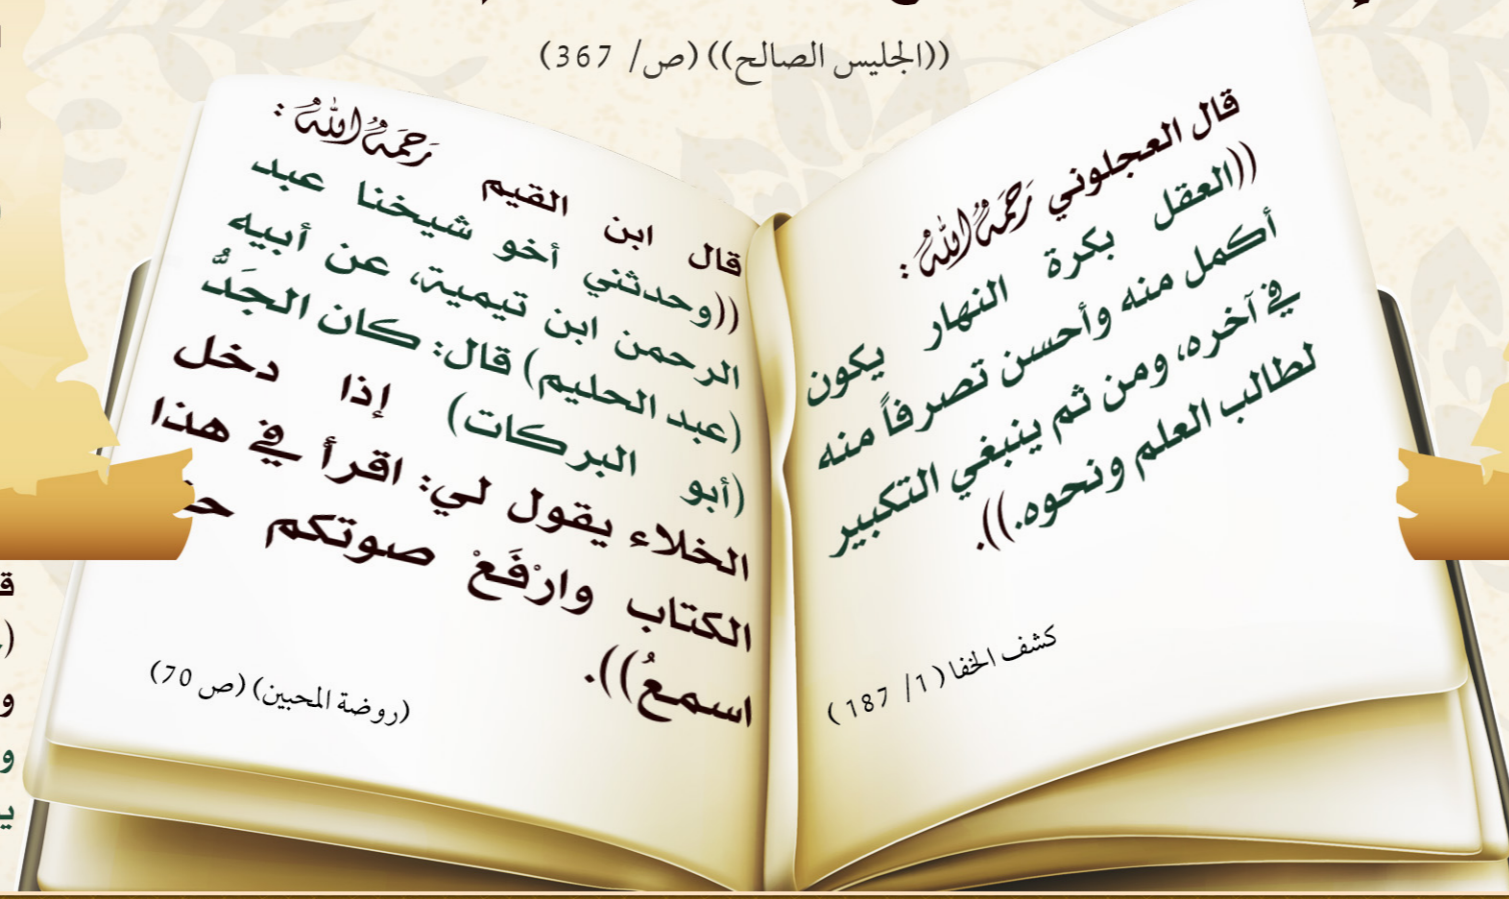 ((الجليس الصالح)) (ص/ 367)
قال العجلوني رَحِمَهُ اللَّهُ :
((العقل بكرة النهار يكون
أكمل منه وأحسن تصرفاً منه
في آخره، ومن ثم ينبغي التكبير
لطالب العلم ونحوه.)).
كشف الخفا (1/ 187)
قال ابن القيم رَحِمَهُ اللَّهُ :
((وحدثني أخو شيخنا عبد
الرحمن ابن تيمية، عن أبيه
(عبد الحليم) قال: كان الجَدُّ
(أبو البركات) إذا دخل
الخلاء يقول لي: اقرأ في هذا
الكتاب وارْفَعْ صوتكم
اسمعُ)).
(روضة المحبين) (ص 70)